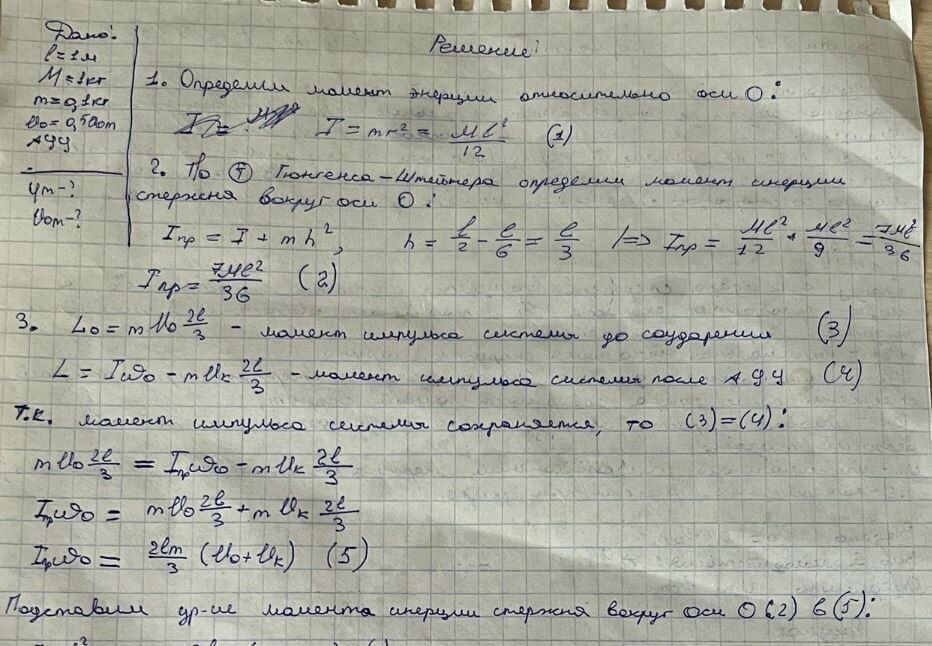 Дано:
l = 1 м
M = 1 кг
m = 0,1 кг
АУУ
φm - ?
Решение:
1. Определим момент энерции относительно оси О:
I = mr² = Ml²/12 (1)
2. По Т Гюнгенса-Штейнера определим момент инерции
стержня вокруг оси О:
Iпр = I + mh², h = l/2 - l/6 = l/3 |=> Iпр = Ml²/12 + Ml²/9 = 7Ml²/36
Iпр = 7Ml²/36 (2)
3. L₀ = mU₀ 2l/3 - момент импульса системы до соударении (3)
L = Iω₀ - mUк 2l/3 - момент импульса системы после А.У.У (4)
т.к. момент импульса системы сохраняется, то (3)=(4):
mU₀ 2l/3 = Iпрω₀ - mUк 2l/3
Iпрω₀ = mU₀ 2l/3 + mUк 2l/3
Iпрω₀ = 2lm/3 (U₀ + Uк) (5)
Подставим ур-ие момента инерции стержня вокруг оси О (2) в (5):